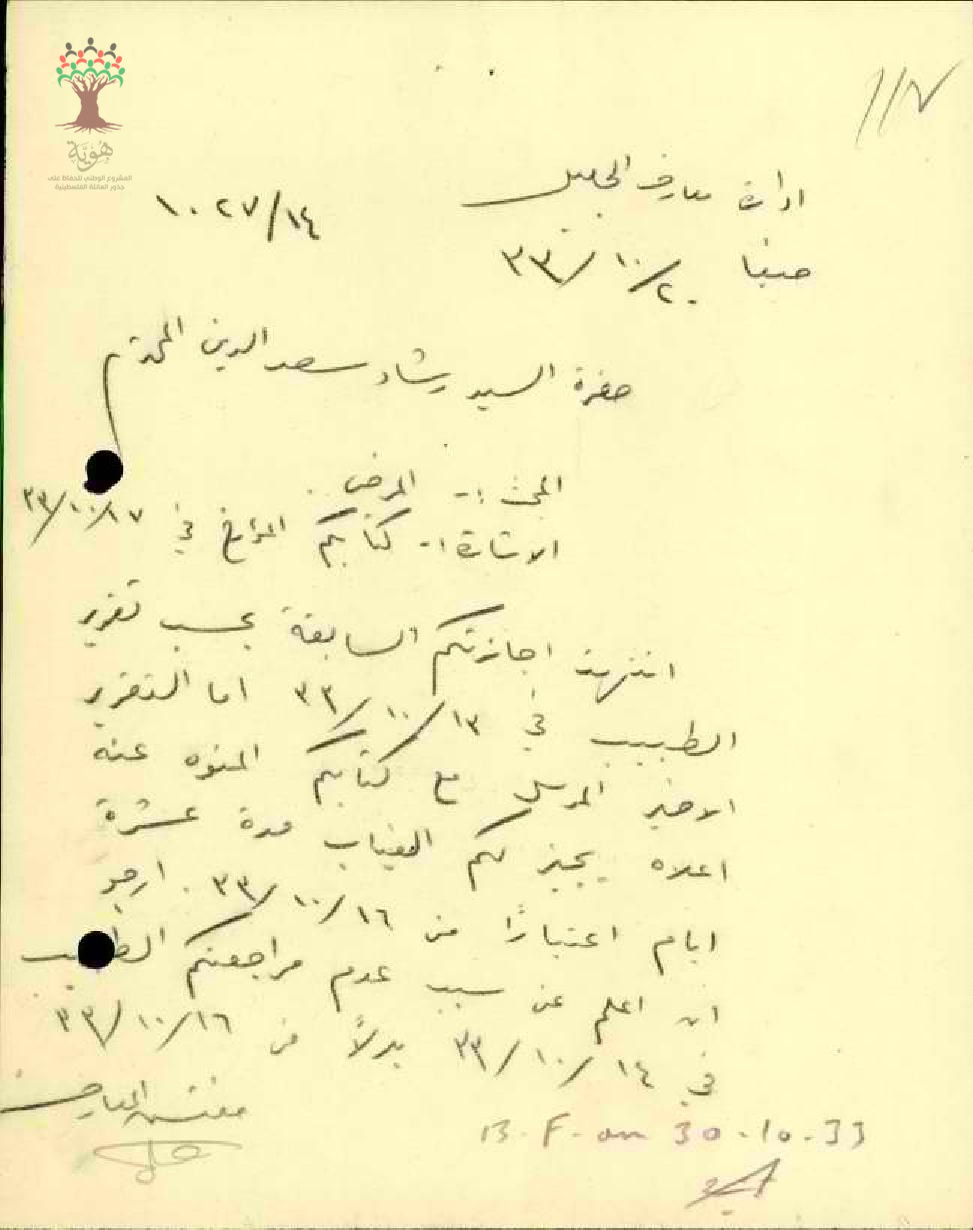 هوية
المشروع الوطني للحفاظ على
جذور العائلة الفلسطينية
١١٧
ادارة معارف الجليل
١٠٢٧/١٤
صفد ٢٠/١٠/٣٣
حضرة السيد رشاد سعد الدين المحترم
البحث :- المرض .
الاشارة :- كتابكم المؤرخ في ١٧/١٠/٣٣
انتهت اجازتكم السابقة بحسب تقرير
الطبيب في ١٣/١٠/٣٣ اما التقرير
الاخير المرسل مع كتابكم المنوه عنه
اعلاه يجيز لكم الغياب مدة عشرة
ايام اعتبارًا من ١٦/١٠/٣٣ . ارجو
ان اعلم عن سبب عدم مراجعتكم الطبيب
في ١٤/١٠/٣٣ بدلاً من ١٦/١٠/٣٣
مفتش المعارف
B. F. on 30-10-33